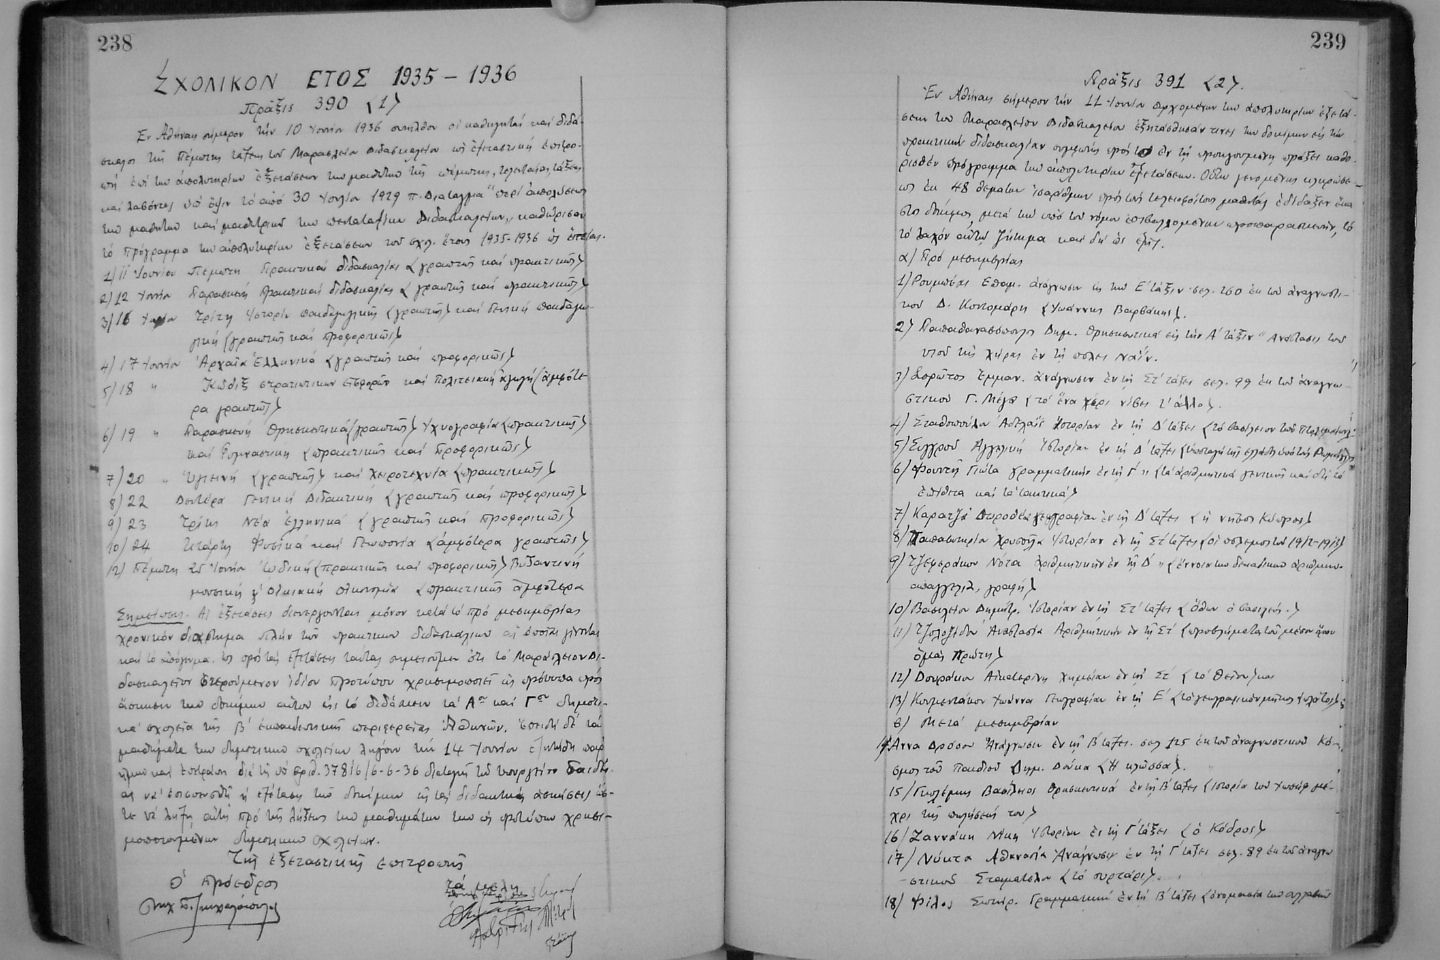 238
ΣΧΟΛΙΚΟΝ ΕΤΟΣ 1935 – 1936
Πρᾶξις 390 <1>
Ἐν Ἀθήναις σήμερον τὴν 10 Ἰουνίου 1936 συνῆλθον οἱ καθηγηταὶ καὶ διδά-
σκαλοι τῆς πέμπτης τάξεως τοῦ Μαρασλείου Διδασκαλείου ὡς ἐξεταστικὴ ἐπιτρο-
πὴ ἐπὶ τῶν ἀπολυτηρίων ἐξετάσεων τῶν μαθητῶν τῆς πέμπτης, τελευταίας τάξεως
καὶ λαβόντες ὑπ' ὄψιν τὸ ἀπὸ 30 Ἰουλίου 1929 π. Διάταγμα "περὶ ἀπολύσεως
τῶν μαθητῶν καὶ μαθητριῶν τῶν πενταταξίων Διδασκαλείων", καθώρισαν
τὸ πρόγραμμα τῶν ἀπολυτηρίων ἐξετάσεων τοῦ σχολ. ἔτους 1935-1936 ὡς ἑπεται.
1/ 11 Ἰουνίου Πέμπτη Πρακτικαὶ διδασκαλίαι <γραπτῶς καὶ πρακτικῶς>
2/ 12 Ἰουνίου Παρασκευὴ Πρακτικαὶ διδασκαλίαι <γραπτῶς καὶ πρακτικῶς>
3/ 16 Ἰουνίου Τρίτη Ἱστορία παιδαγωγικῆς <γραπτῶς> καὶ Γενικὴ Παιδαγω-
γικὴ <γραπτῶς καὶ προφορικῶς>
4/ 17 Ἰουνίου Ἀρχαῖα Ἑλληνικὰ <γραπτῶς καὶ προφορικῶς>
5/ 18 " Κῶδιξ στρατιωτικῶν εἰσφορῶν καὶ Πολιτειακὴ ἀγωγὴ <ἀμφότε-
ρα γραπτῶς>
6/ 19 " Παρασκευὴ Θρησκευτικὰ <γραπτῶς> Ἰχνογραφία <πρακτικῶς>
καὶ Γυμναστικὴ <πρακτικῶς καὶ προφορικῶς>
7/ 20 " Ὑγιεινὴ <γραπτῶς> καὶ Χειροτεχνία <πρακτικῶς>
8/ 22 Δευτέρα Γενικὴ Διδακτικὴ <γραπτῶς καὶ προφορικῶς>
9/ 23 Τρίτη Νέα Ἑλληνικὰ <γραπτῶς καὶ προφορικῶς>
10/ 24 Τετάρτη Φυσικὰ καὶ Γεωπονία <ἀμφότερα γραπτῶς>
12/ Πέμπτη 25 Ἰουνίου Ὠδικὴ <πρακτικῶς καὶ προφορικῶς> Βυζαντινὴ
μουσικὴ καὶ Οἰκιακὴ οἰκονομία <πρακτικῶς ἀμφότερα
Σημείωσις. Αἱ ἐξετάσεις διενεργοῦνται μόνον κατὰ τὸ πρὸ μεσημβρίας
χρονικὸν διάστημα πλὴν τῶν πρακτικῶν διδασκαλιῶν αἱ ὁποῖαι γίνονται
καὶ τὸ ἀπόγευμα. Ὡς πρὸς τὰς ἐξετάσεις ταύτας σημειοῦμεν ὅτι τὸ Μαράσλειον Δι-
δασκαλεῖον στερούμενον ἰδίου προτύπου χρησιμοποιεῖ ὡς πρότυπα πρὸς
ἄσκησιν τῶν δοκίμων αὐτοῦ εἰς τὸ διδάσκειν τὰ Αον καὶ Γον δημοτι-
κὰ σχολεῖα τῆς β' ἐκπαιδευτικῆς περιφερείας Ἀθηνῶν. Ἐπειδὴ δὲ τὰ
μαθήματα τῶν δημοτικῶν σχολείων λήγουν τὴν 14 Ἰουνίου ἐζητήθη παρ'
ἡμῶν καὶ ἐνεκρίθη διὰ τῆς ὑπ' ἀριθ. 37816/6-6-36 διαταγῆς τοῦ ὑπουργείου Παιδεί-
ας νὰ ἐπισπευσθῇ ἡ ἐξέτασις τῶν δοκίμων εἰς τὰς διδακτικὰς ἀσκήσεις ὥσ-
τε νὰ λήξῃ αὕτη πρὸ τῆς λήξεως τῶν μαθημάτων τῶν ὡς προτύπων χρησι-
μοποιουμένων δημοτικῶν σχολείων.
Τῆς ἐξεταστικῆς ἐπιτροπῆς
Ὁ Πρόεδρος
τὰ μέλη
239
Πρᾶξις 391 <2>.
Ἐν Ἀθήναις σήμερον τὴν 11 Ἰουνίου ἀρχομένων τῶν ἀπολυτηρίων ἐξετά-
σεων τοῦ Μαρασλείου Διδασκαλείου ἐξητάσθησάν τινες τῶν δοκίμων εἰς τὴν
πρακτικὴν διδασκαλίαν συμφώνως πρὸς τὸ ἐν τῇ προηγουμένῃ πράξει καθο-
ρισθὲν πρόγραμμα τῶν ἀπολυτηρίων ἐξετάσεων. Οὕτω γενομένης κληρώσε-
ως ἐκ 48 θεμάτων ἰσαρίθμων πρὸς τοὺς τελειοφοίτους μαθητὰς ἐδίδαξεν ἕκα-
στος δόκιμος, μετὰ τὴν ὑπὸ τοῦ νόμου ἐπιβαλλομένην προπαρασκευήν, τὸ
τὸ λαχὸν αὐτῷ ζήτημα καὶ δὴ ὡς ἑξῆς.
α/ Πρὸ μεσημβρίας
1/ Ρουμπέσι Εὐαγ. ἀνάγνωσιν εἰς τὴν Ε' τάξιν σελ. 160 ἐκ τοῦ ἀναγνωστι-
κοῦ Δ. Κοντομάρη <Ἰωάννης Βαρβάκης>.
2> Παπαθανασόπουλος Δημ. Θρησκευτικὰ εἰς τὴν Α' τάξιν "Ἀνάστασις τοῦ
υἱοῦ τῆς χήρας ἐν τῇ πόλει Ναΐν.
3/ Ἐμμαν. ἀνάγνωσιν ἐν τῇ Στ' τάξει σελ. 99 ἐκ τοῦ ἀναγνω-
στικοῦ Γ. Μέγα <τὸ ἕνα χέρι νίβει τ' ἄλλο>.
4/ Σταθοπούλου Ἀδελαΐς Ἱστορίαν ἐν τῇ Δ' τάξει <τὸ βασίλειον τῶν Πτολεμαίων>
5/ Συγγροῦ Ἀγγελικὴ Ἱστορίαν ἐν τῇ Δ' τάξει <ὑποταγὴ τῆς Ἑλλάδος ὑπὸ τῶν Ρωμαίων>
6/ Φουντῆ Γιῶτα γραμματικὴν ἐν τῇ Γ' " <τὰ ἀριθμητικὰ γενικῶς καὶ δὴ τὰ
ἐπίθετα καὶ τὰ τακτικά>
7/ Καρατζᾶ Δωροθέα γεωγραφίαν ἐν τῇ Δ' τάξει <ἡ νῆσος Κύπρος>
8/ Παπασωτηρίου Χρυσούλα Ἱστορίαν ἐν τῇ Στ' τάξει <οἱ πόλεμοι τοῦ 1912-1913>
9/ Τζεφεράκου Νότα Ἀριθμητικὴν ἐν τῇ Δ' " <ἔννοια τῶν δεκαδικῶν ἀριθμῶν-
ἀπαγγελία, γραφή>
10/ Βασιλείου Δημήτρ. Ἱστορίαν ἐν τῇ Στ' τάξει <Ὄθων ὁ βασιλεύς.>
11/ Ἀναστασία Ἀριθμητικὴν ἐν τῇ Στ' <προβλήματα τοῦ μέσου ὅρου
ὁμὰς πρώτη>
12/ Δουράκου Αἰκατερίνη χημείαν ἐν τῇ Στ' <τὸ θεῖον> καὶ
13/ Κουμεντάκου Ἰωάννα Γεωγραφίαν ἐν τῇ Ε' <τὸ γεωγραφικὸν μῆκος καὶ πλάτος>
β/ Μετὰ μεσημβρίαν
14/ Ἄννα Δρόσου Ἀνάγνωσιν ἐν τῇ Β' τάξει. σελ 125 ἐκ τοῦ ἀναγνωστικοῦ Κό-
σμος τοῦ Παιδιοῦ Δημ. Δούκα <Ἡ κλώσσα>.
15/ Βασίλειος Θρησκευτικὰ ἐν τῇ Β' τάξει <Ἱστορία τοῦ Ἰωσὴφ μέ-
χρι τῆς πωλήσεώς του>
16/ Ζαννάκη Νίκη Ἱστορίαν ἐν τῇ Γ' τάξει <ὁ Κόδρος>
17/ Νύκτα Ἀθανασία Ἀνάγνωσιν ἐν τῇ Γ' τάξει σελ. 89 ἐκ τοῦ ἀναγνω-
-στικοῦ Σταματέλου <τὸ συρτάρι>.
18/ Φίλος Σωτήρ. Γραμματικὴ ἐν τῇ Β' τάξει